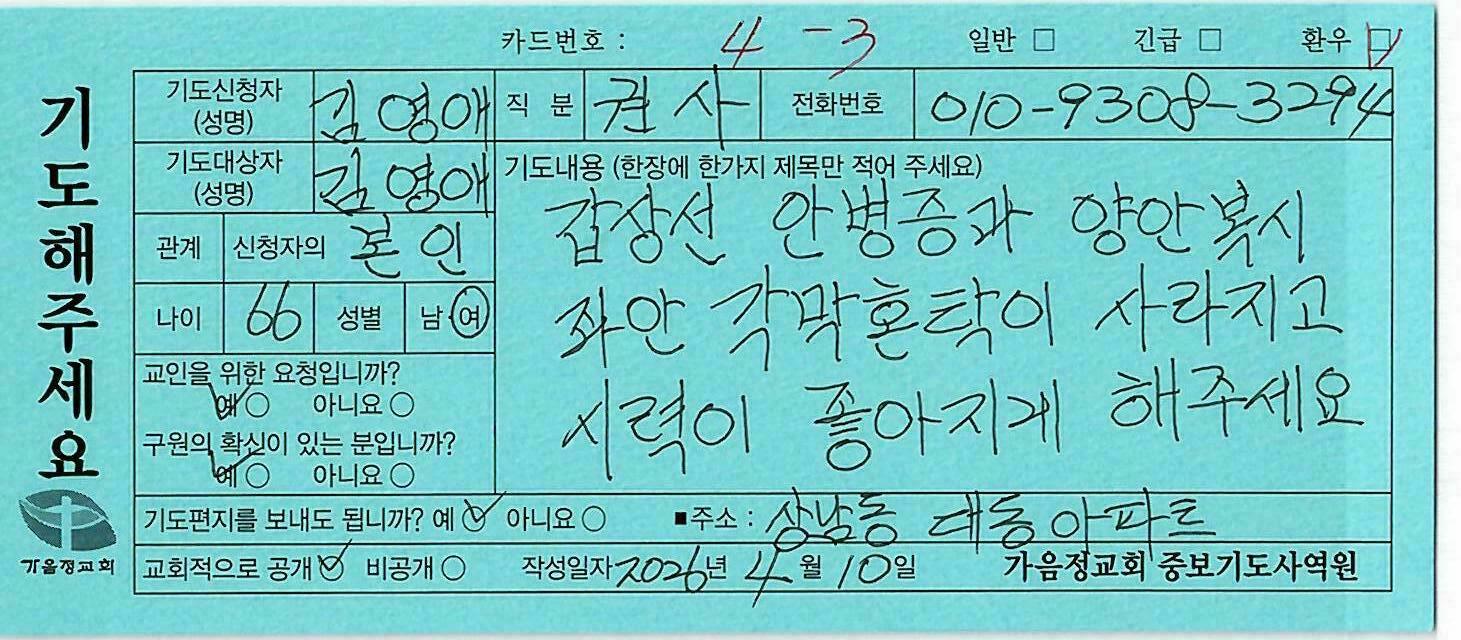 카드번호 : 4-3 일반 □ 긴급 □ 환우 ☑
기도해주세요
기도신청자 (성명) 김영애 직 분 권사 전화번호 010-9308-3294
기도대상자 (성명) 김영애
기도내용 (한장에 한가지 제목만 적어 주세요)
갑상선 안병증과 양안복시
좌안 각막혼탁이 사라지고
시력이 좋아지게 해주세요
관계 신청자의 본인
나이 66 성별 남 여
교인을 위한 요청입니까?
예 ○ 아니요 ○
구원의 확신이 있는 분입니까?
예 ○ 아니요 ○
기도편지를 보내도 됩니까? 예 ○ 아니요 ○ ■주소 : 상남동 대동아파트
교회적으로 공개 ○ 비공개 ○ 작성일자 2026년 4월 10일 가음정교회 중보기도사역원
가음정교회